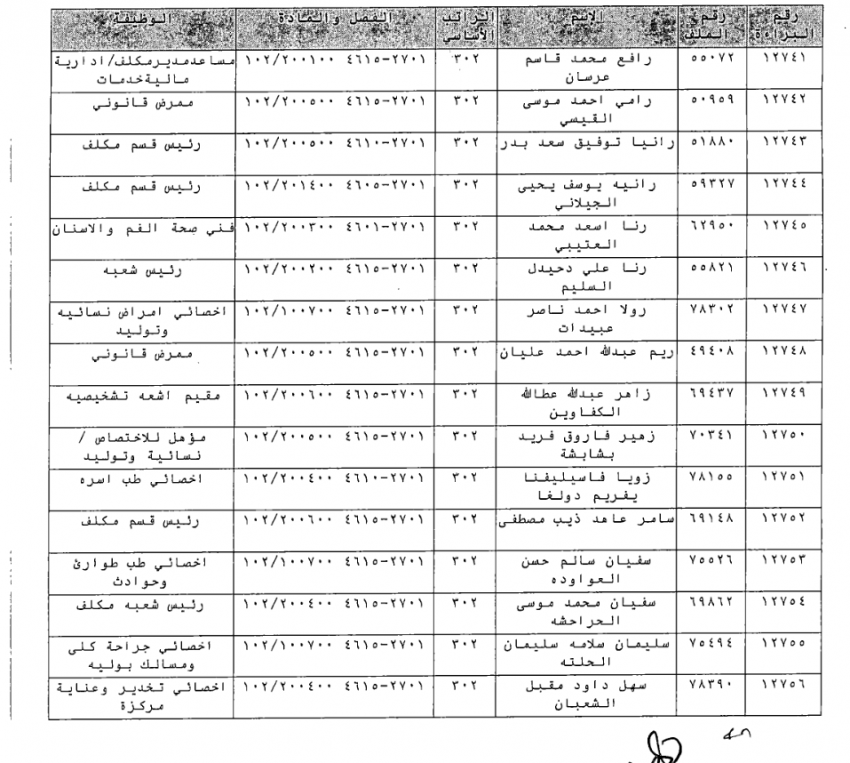 رقم البراءة رقم الملف الاسم الراتب الأساسي الفصل والمادة الوظيفة
١٢٧٤١ ٥٥٠٧٢ رافع محمد قاسم عرسان ٣٠٢ ٢٧٠١-٤٦١٥ ١٠٢/٢٠٠١٠٠ مساعدمدير مكلف/ادارية ماليةخدمات
١٢٧٤٢ ٥٠٩٥٩ رامي احمد موسى القيسي ٣٠٢ ٢٧٠١-٤٦١٥ ١٠٢/٢٠٠٥٠٠ ممرض قانوني
١٢٧٤٣ ٥١٨٨٠ رانيا توفيق سعد بدر ٣٠٢ ٢٧٠١-٤٦١٠ ١٠٢/٢٠٠٥٠٠ رئيس قسم مكلف
١٢٧٤٤ ٥٩٣٢٧ رانيه يوسف يحيى الجيلاني ٣٠٢ ٢٧٠١-٤٦٠٥ ١٠٢/٢٠١٤٠٠ رئيس قسم مكلف
١٢٧٤٥ ٦٢٩٥٠ رنا اسعد محمد العتيبي ٣٠٢ ٢٧٠١-٤٦٠١ ١٠٢/٢٠٠٣٠٠ فني صحة الفم والاسنان
١٢٧٤٦ ٥٥٨٢١ رنا علي دحيدل السليم ٣٠٢ ٢٧٠١-٤٦١٥ ١٠٢/٢٠٠٢٠٠ رئيس شعبه
١٢٧٤٧ ٧٨٣٠٢ رولا احمد ناصر عبيدات ٣٠٢ ٢٧٠١-٤٦١٥ ١٠٢/١٠٠٧٠٠ اخصائي امراض نسائيه وتوليد
١٢٧٤٨ ٤٩٤٠٨ ريم عبدالله احمد عليان ٣٠٢ ٢٧٠١-٤٦١٥ ١٠٢/٢٠٠٥٠٠ ممرض قانوني
١٢٧٤٩ ٦٩٤٣٧ زاهر عبدالله عطالله الكفاوين ٣٠٢ ٢٧٠١-٤٦١٥ ١٠٢/٢٠٠٦٠٠ مقيم اشعه تشخيصيه
١٢٧٥٠ ٧٠٣٤١ زهير فاروق فريد بشابشة ٣٠٢ ٢٧٠١-٤٦١٥ ١٠٢/٢٠٠٥٠٠ مؤهل للاختصاص / نسائية وتوليد
١٢٧٥١ ٧٨١٥٥ زويا فاسيليفنا يفريم دولغا ٣٠٢ ٢٧٠١-٤٦١٠ ١٠٢/٢٠٠٤٠٠ اخصائي طب اسره
١٢٧٥٢ ٦٩١٤٨ سامر عامد ذيب مصطفى ٣٠٢ ٢٧٠١-٤٦١٥ ١٠٢/٢٠٠٦٠٠ رئيس قسم مكلف
١٢٧٥٣ ٧٥٥٢٦ سفيان سالم حسن العواوده ٣٠٢ ٢٧٠١-٤٦١٥ ١٠٢/١٠٠٧٠٠ اخصائي طب طوارئ وحوادث
١٢٧٥٤ ٦٩٨٦٢ سفيان محمد موسى الحراحشه ٣٠٢ ٢٧٠١-٤٦١٥ ١٠٢/٢٠٠٤٠٠ رئيس شعبه مكلف
١٢٧٥٥ ٧٥٤٩٤ سليمان سلامه سليمان الحلته ٣٠٢ ٢٧٠١-٤٦١٥ ١٠٢/١٠٠٧٠٠ اخصائي جراحة كلى ومسالك بوليه
١٢٧٥٦ ٧٨٣٩٠ سهل داود مقبل الشعبان ٣٠٢ ٢٧٠١-٤٦١٥ ١٠٢/٢٠٠٤٠٠ اخصائي تخدير وعناية مركزة